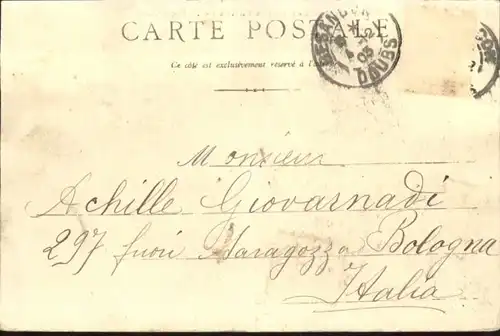 CARTE POSTALE
Ce côté est exclusivement réservé à l'
BESANÇON
4 -12
03
DOUBS
Monsieur
Achille Giovarnadi
297 fuori Saragozza Bologna
Italia